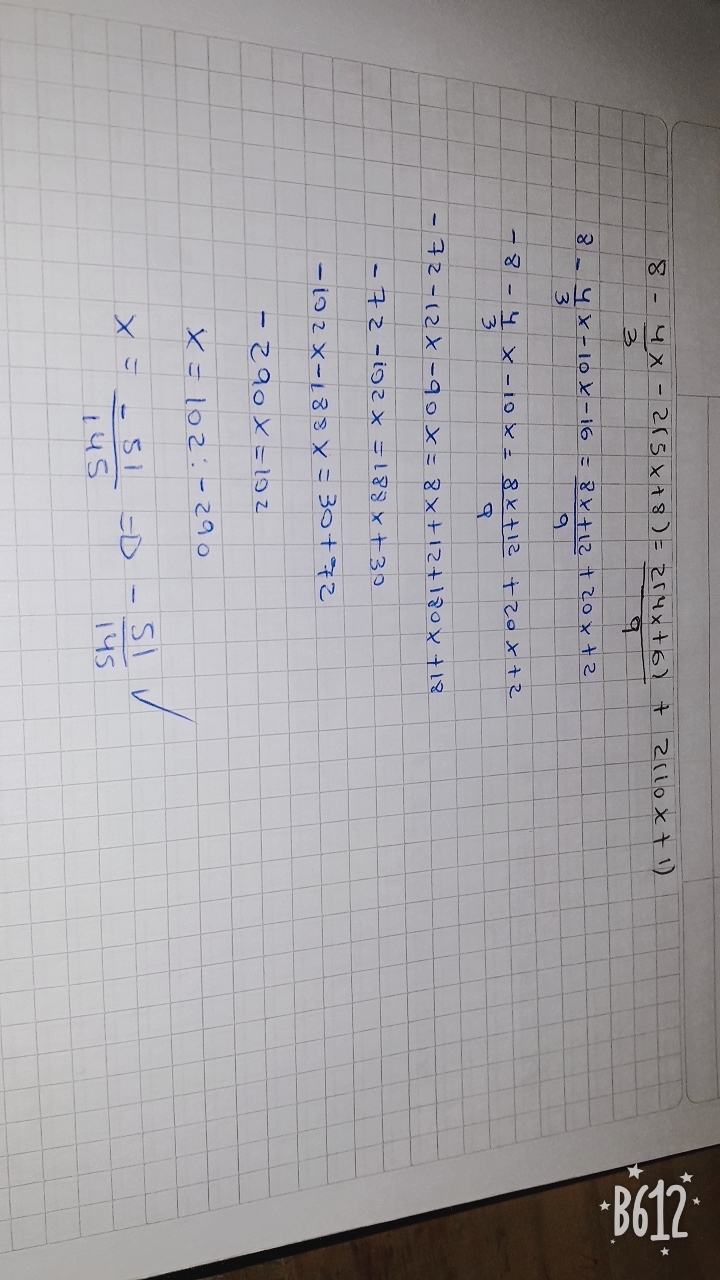 8 - 4x/3 - 2(5x+8) = 2(4x+6)/9 + 2(10x+1)
8 - 4/3 x - 10x - 16 = 8x+12/9 + 20x+2
-8 - 4/3 x - 10x = 8x+12/9 + 20x+2
-72-12x-90x = 8x+12+180x+18
-72-102x = 188x+30
-102x-188x = 30+72
-290x = 102
x = 102:-290
x = -51/145 => -51/145 ✓
B612